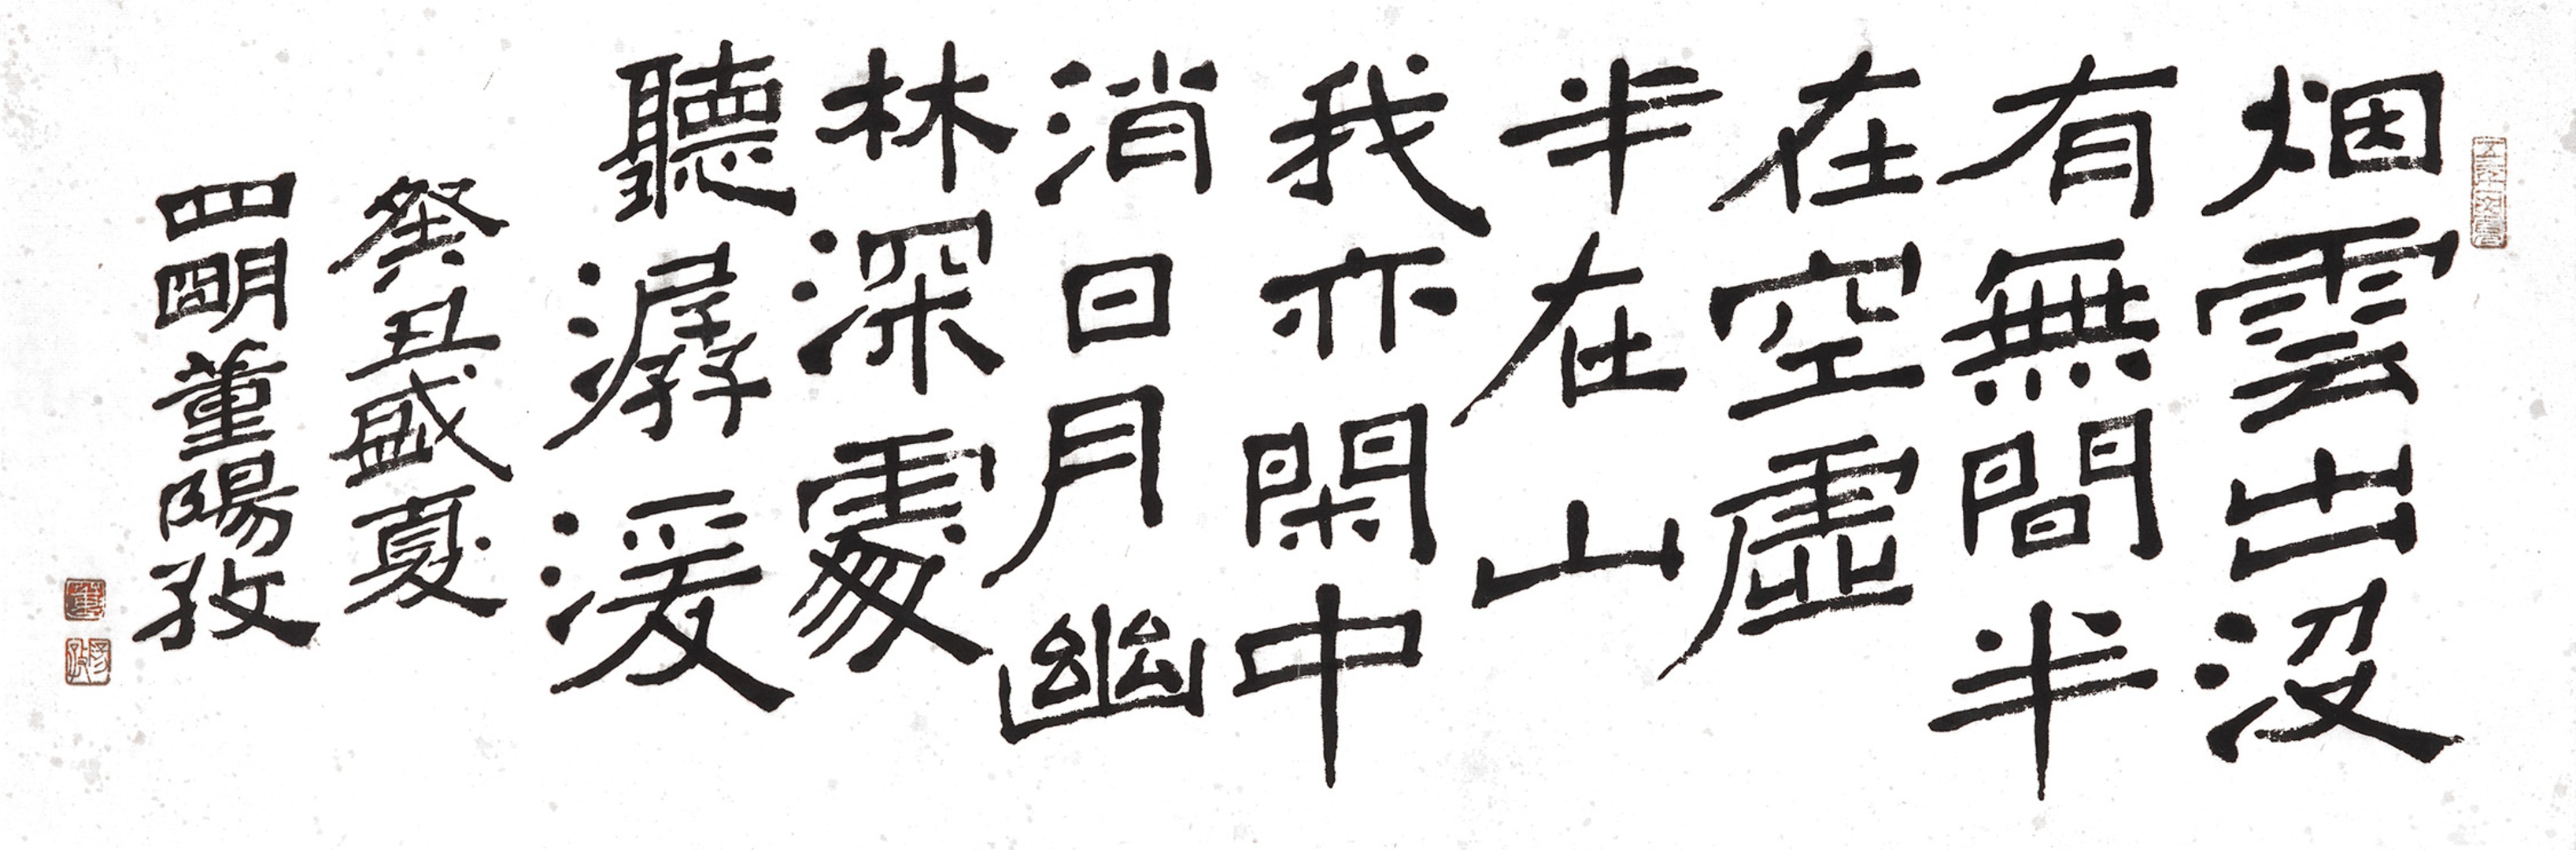 烟雲出没
有無間半
在空虛
半在山
我亦閑中
消日月幽
林深處
聽潺湲
癸丑盛夏
四明董陽孜